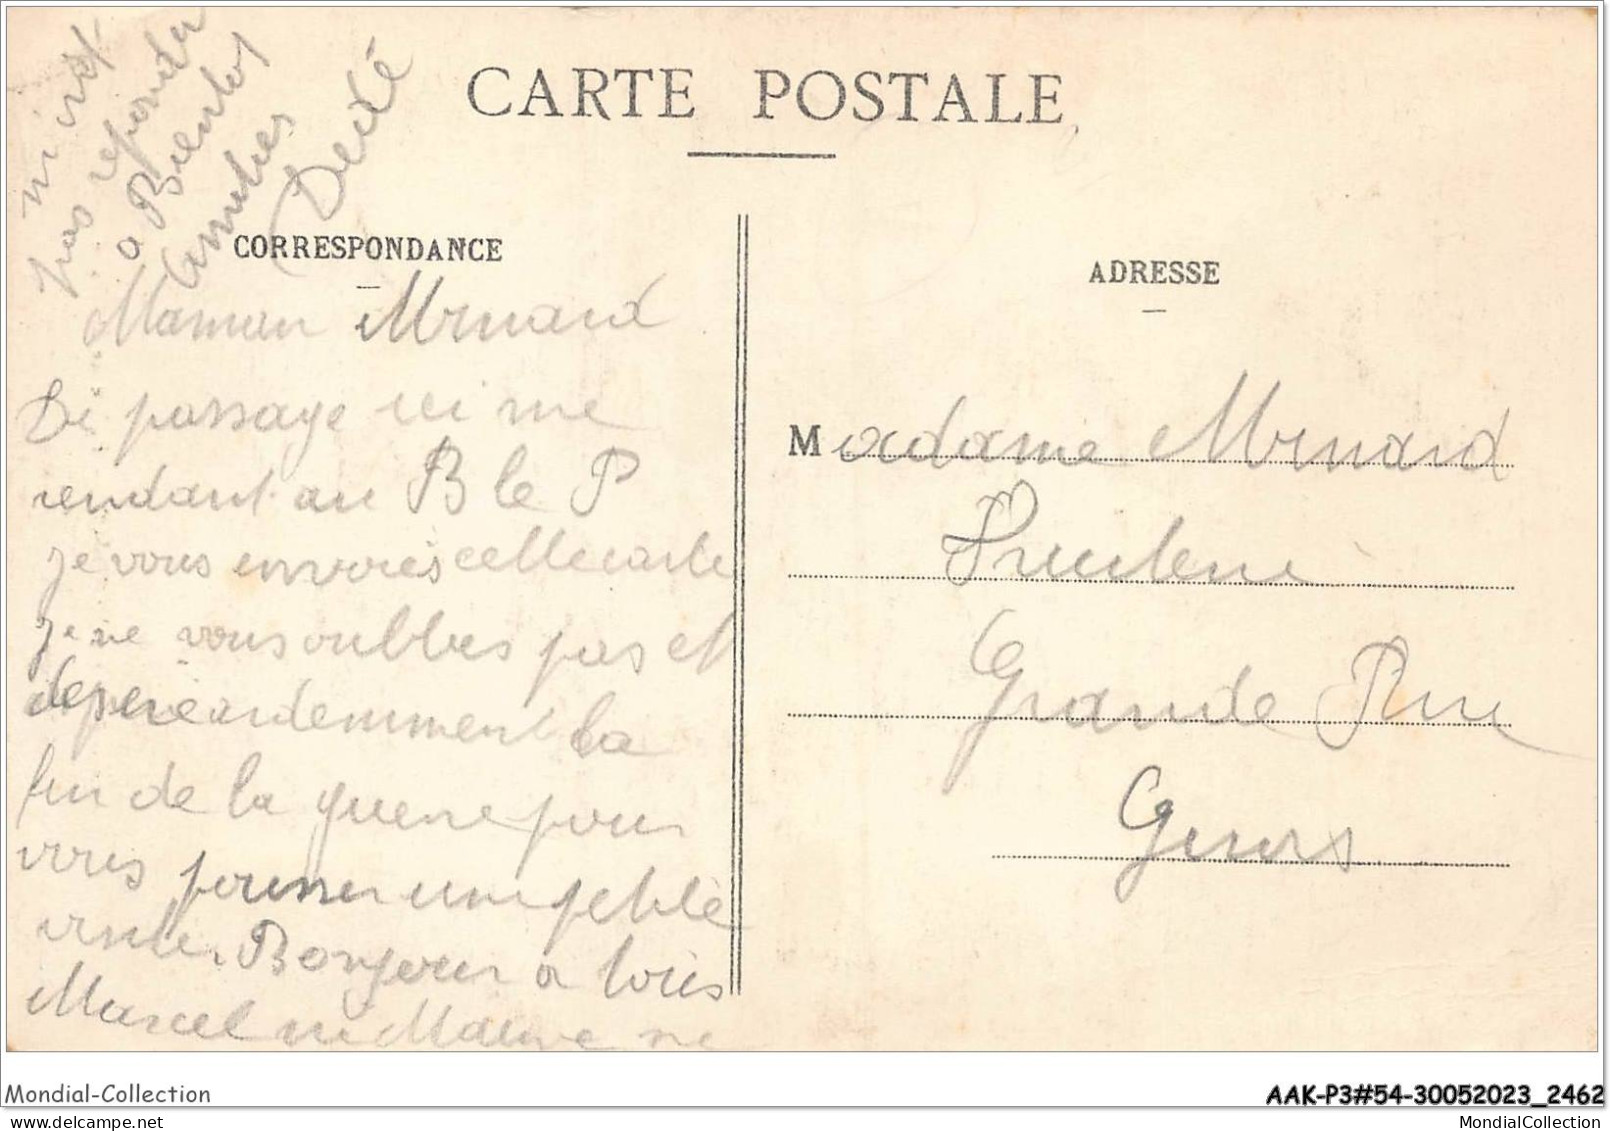 CARTE POSTALE
CORRESPONDANCE
Maman
De passage ici me
rendant au B le P
je vous envoies cette carte
je ne vous oublies pas et
ardemment la
fin de la guerre pour
vous pousser une petite
visite. Bonjour a tous
Marcel ni ne
m'ont
pas repondu
a Bientot
amities
Dédé
ADRESSE
Madame
Grande Rue
Mondial-Collection
AAK-P3#54-30052023_2462
www.delcampe.net
MondialCollection